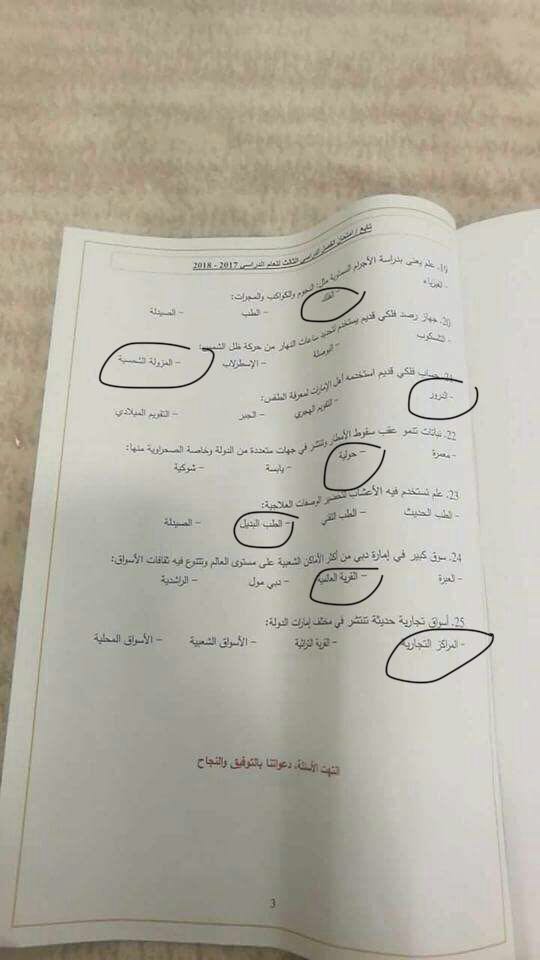 تابع / امتحان الفصل الدراسي الثالث للعام الدراسي 2017 - 2018
19. علم يعنى بدراسة الأجرام السماوية مثل: النجوم والكواكب والمجرات:
- الفيزياء - الفلك - الطب - الصيدلة
20. جهاز رصد فلكي قديم يستخدم لتحديد ساعات النهار من حركة ظل الشمس:
- التلسكوب - البوصلة - الإسطرلاب - المزولة الشمسية
21. حساب فلكي قديم استخدمه أهل الإمارات لمعرفة الطقس:
- الدرور - التقويم الهجري - الجبر - التقويم الميلادي
22. نباتات تنمو عقب سقوط الأمطار وتنتشر في جهات متعددة من الدولة وخاصة الصحراوية منها:
- معمرة - حولية - يابسة - شوكية
23. علم تستخدم فيه الأعشاب لتحضير الوصفات العلاجية:
- الطب الحديث - الطب التقني - الطب البديل - الصيدلة
24. سوق كبير في إمارة دبي من أكثر الأماكن الشعبية على مستوى العالم وتتنوع فيه ثقافات الأسواق:
- العبرة - القرية العالمية - دبي مول - الراشدية
25. أسواق تجارية حديثة تنتشر في مختلف إمارات الدولة:
- المراكز التجارية - القرية التراثية - الأسواق الشعبية - الأسواق المحلية
انتهت الأسئلة، دعواتنا بالتوفيق والنجاح
3